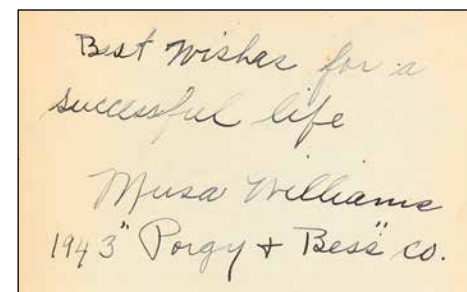 Best Wishes for a
successful life
Musa Williams
1943 "Porgy + Bess" co.